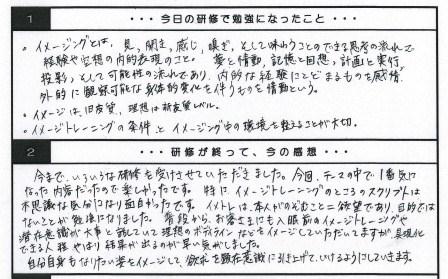 1 ・・・今日の研修で勉強になったこと・・・
・イメージングとは、見、聞き、感じ、嗅ぎ、そして味わうことのできる思考の流れで
経験や空想の内的表現のこと。 夢と情動、記憶と回想、計画と実行、
投影、そして可能性の流れであり、内的な経験にとどまるものを感情
外的に観察可能な身体的変化を伴うものを情動という。
・イメージは、旧友望、理想は新友望レベル。
・イメージトレーニングの条件とイメージング中の環境を整えることが大切。
2 ・・・研修が終って、今の感想・・・
今まで、いろいろな研修を受けさせていただきました。今回、テーマの中で1番気に
なった内容だったので楽しかったです。 特にイメージトレーニングのところのスクリプトは
不思議な気分になり面白かったです。 イメトレは、本人がのぞむこと=欲望であり、目的では
ないことが勉強になりました。 普段から、お客さまにも入眠前のイメージトレーニングや
潜在意識が大事と話していて理想のボディラインなどをイメージしていただいてますが、具現化
できる人程やはり結果が出るのが早い気がしました。
自分自身もなりたい姿をイメージして、欲求を顕在意識に引き上げていけるようにしていきます。